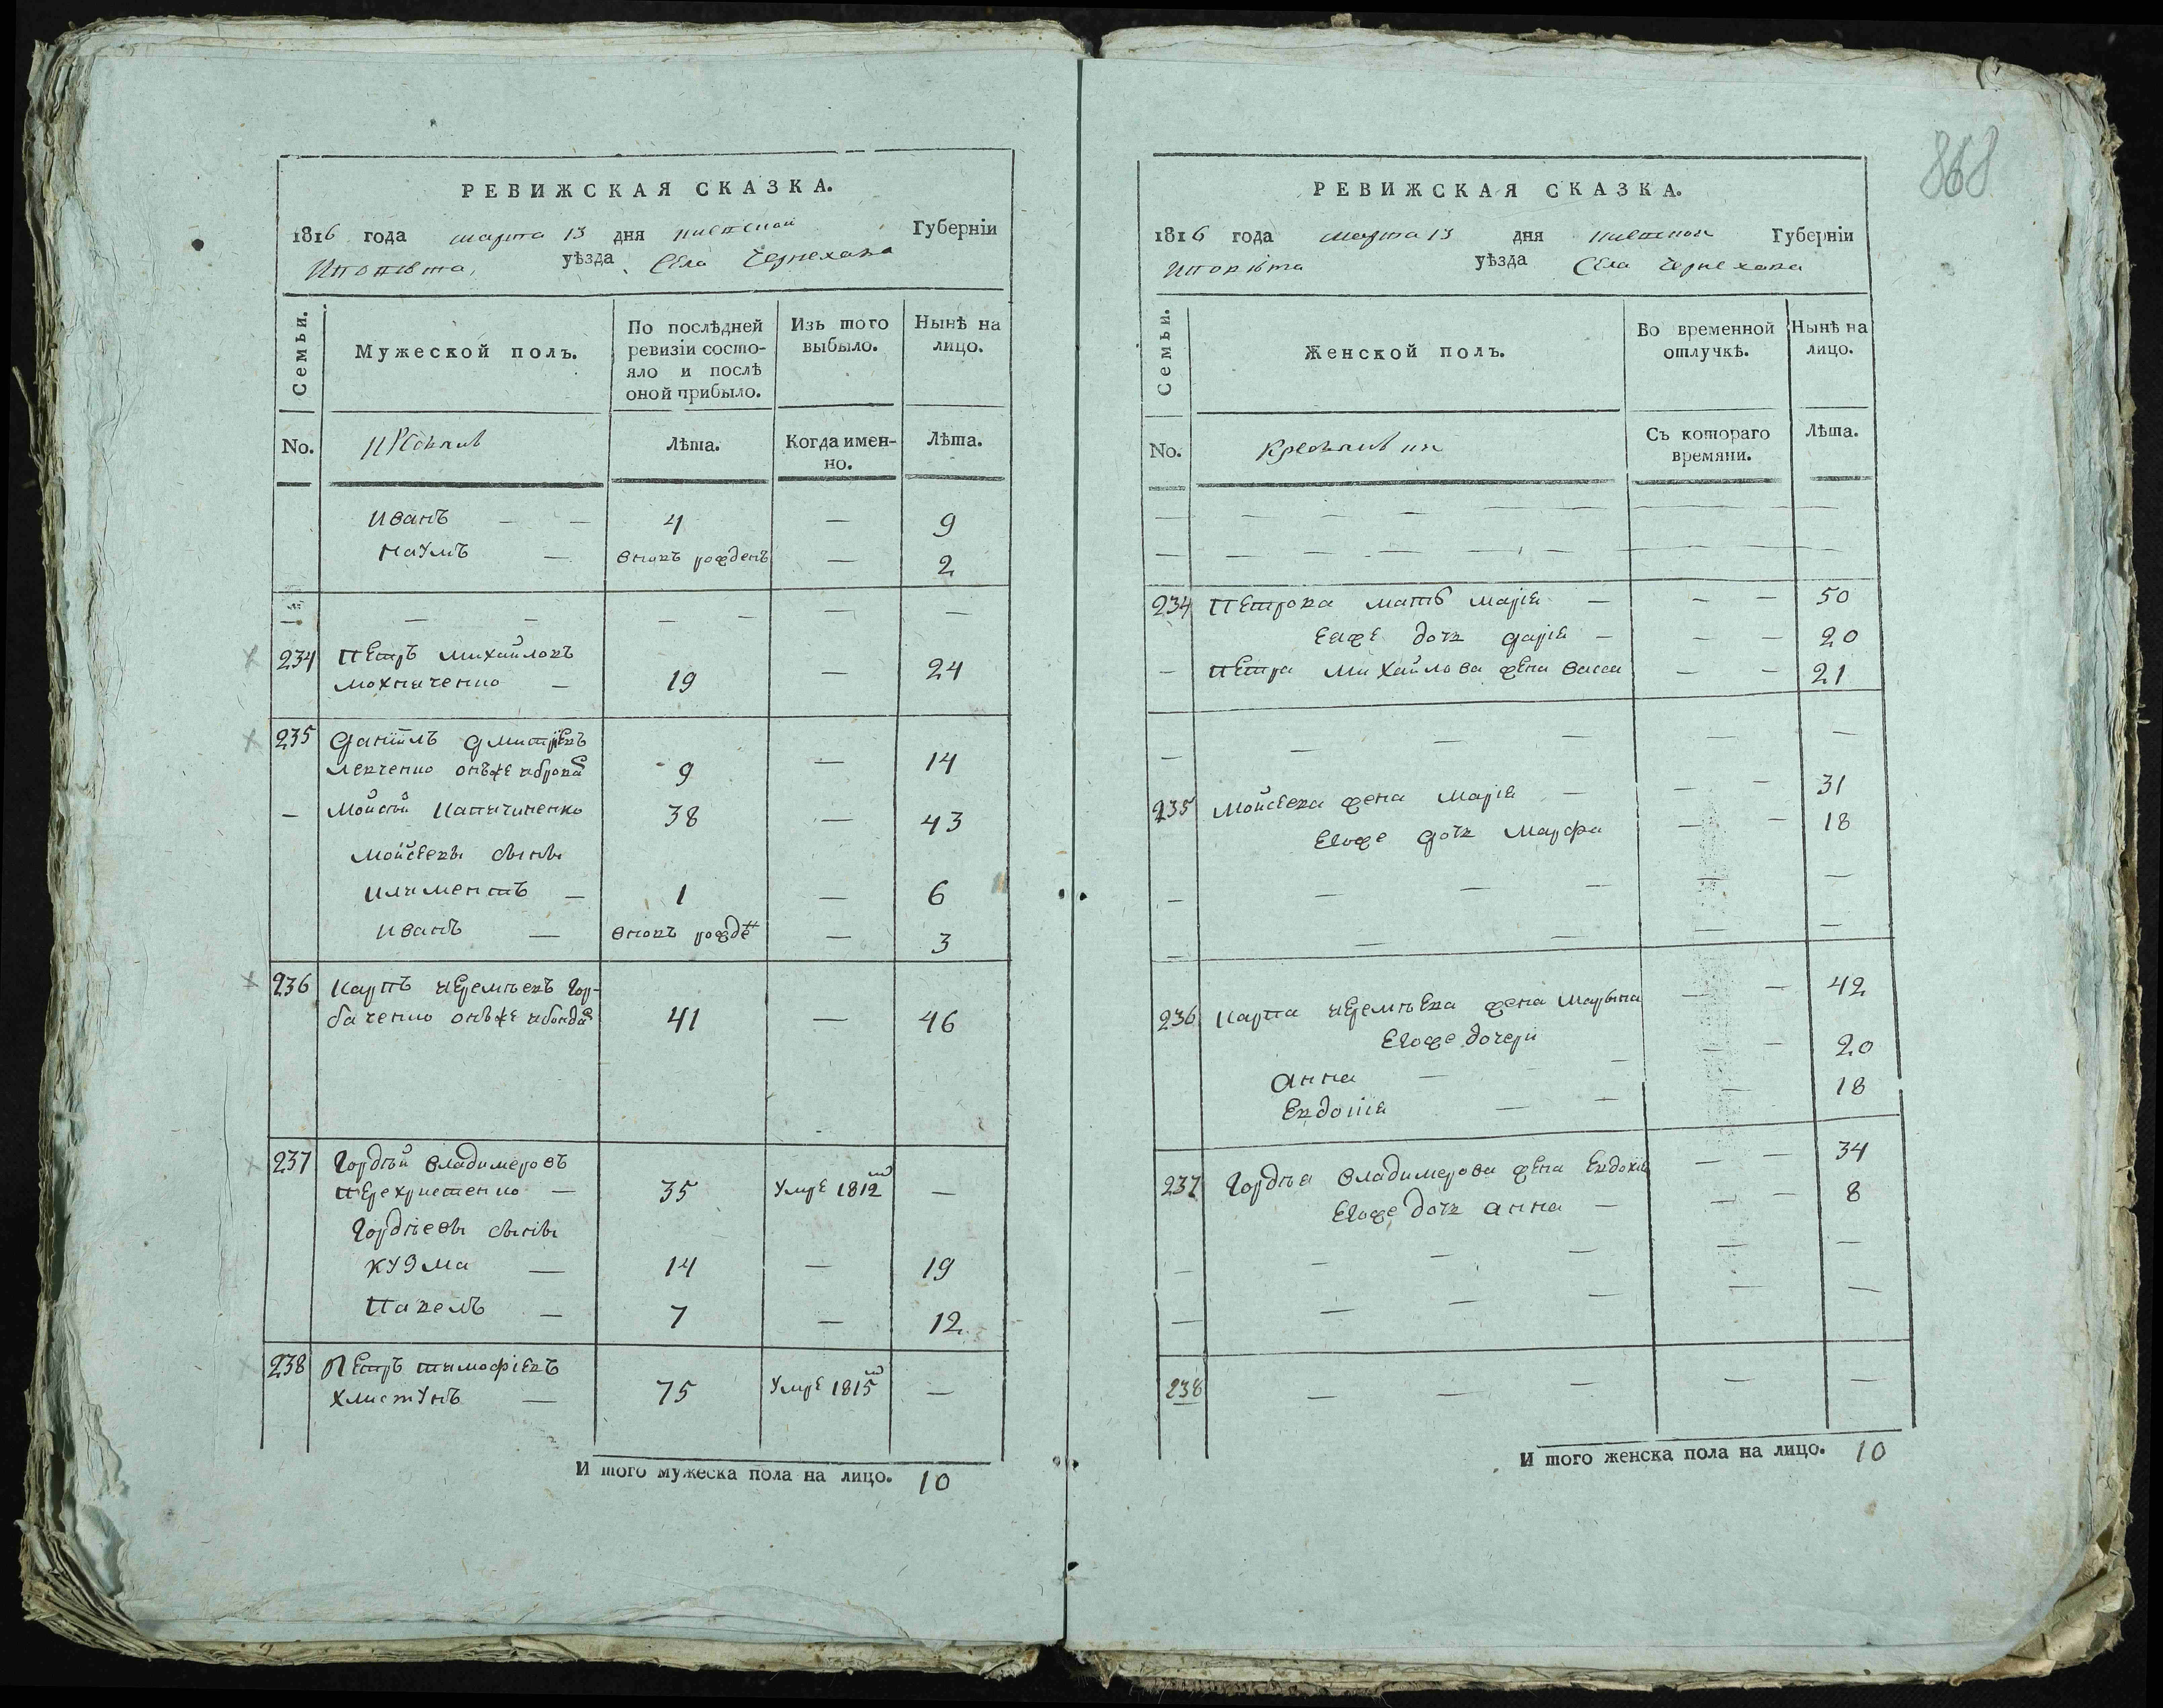 868
РЕВИЖСКАЯ СКАЗКА.
1816 года марта 13 дня киевской Губерніи
уѣзда Села Чернехова
Семьи. Мужеской полъ. По послѣдней ревизіи состояло и послѣ оной прибыло. Изъ того выбыло. Нынѣ на лицо.
No. Лѣта. Когда именно. Лѣта.
Иванъ — — 4 — 9
Наумъ — вновъ рожденъ — 2
— — — — — — — —
234 Петръ Михайловъ
Мохначенко — 19 — 24
235 Даніилъ Дмитріевъ
Левченко онъже 9 — 14
— Мойсей 38 — 43
Мойсеевы сыны
Климентъ — 1 — 6
Иванъ — вновъ рожден — 3
236 Карпъ Иеремѣевъ Гор-
баченко онъже 41 — 46
237 Гордѣй Владимеровъ
Перехристенко — 35 Умре 1812го —
Гордѣевы сыны
Кузма — 14 — 19
Павелъ — 7 — 12
238 Петръ Тимофіевъ
Хлистунъ — 75 Умре 1815го —
И того мужеска пола на лицо. 10
РЕВИЖСКАЯ СКАЗКА.
1816 года марта 13 дня киевской Губерніи
уѣзда Села Чернехова
Семьи. Женской полъ. Во временной отлучкѣ. Нынѣ на лицо.
No. Съ котораго времяни. Лѣта.
— — — — — — — —
— — — — — — — —
234 Петрова мать Марія — — — 50
Еяже дочь Дарія — — — 20
— Петра Михайлова жена Васса — — 21
— — — — — —
235 Мойсеева жена Марія — — — 31
Егоже дочь Марфа — — 18
— — — — — —
— — — — —
236 Карпа Иеремѣева жена Марына — — 42
Егоже дочери
Анна — — — — 20
Евдокія — — — 18
237 Гордѣа Владимерова жена Евдокія — — 34
Егоже дочь Анна — — — 8
— — — — — —
— — — — — —
238 — — — — —
И того женска пола на лицо. 10